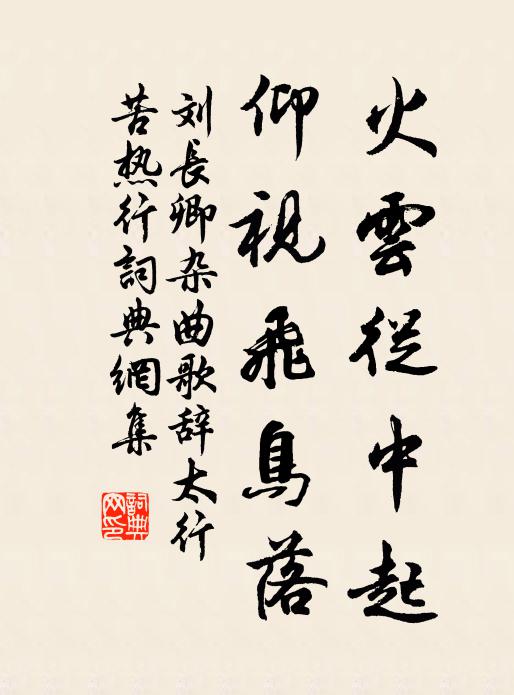 火雲從中起
仰視飛鳥落
刘長卿杂曲歌辞太行
苦热行詞典網集
詞典网印